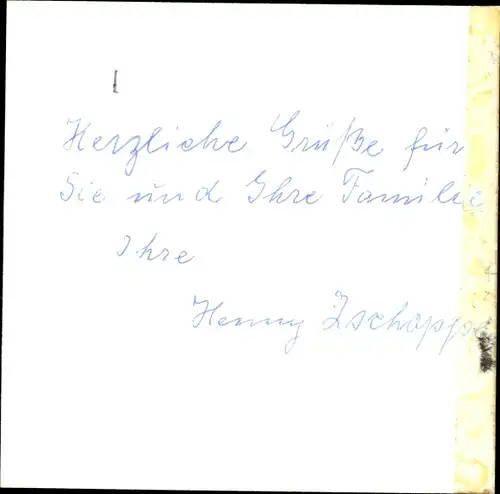 Herzliche Grüße für
Sie und Ihre Familie
Ihre
Henny Zschoppe